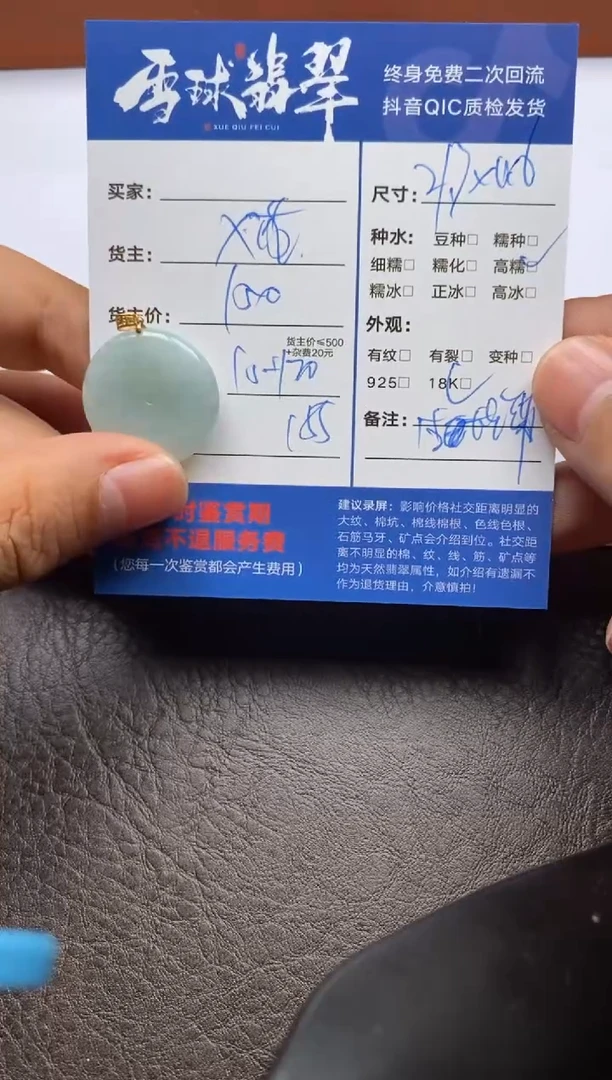 雪球翡翠
XUE QIU FEI CUI
终身免费二次回流
抖音QIC质检发货
买家:
货主:
货主价: 1500
货主价≤500
+杂费20元
185
时鉴赏期
不退服务费
(您每一次鉴赏都会产生费用)
尺寸:
种水: 豆种□ 糯种□
细糯□ 糯化□ 高糯□
糯冰□ 正冰□ 高冰□
外观:
有纹□ 有裂□ 变种□
925□ 18K□
备注:
建议录屏:影响价格社交距离明显的
大纹、棉坑、棉线棉根、色线色根、
石筋马牙、矿点会介绍到位。社交距
离不明显的棉、纹、线、筋、矿点等
均为天然翡翠属性,如介绍有遗漏不
作为退货理由,介意慎拍!